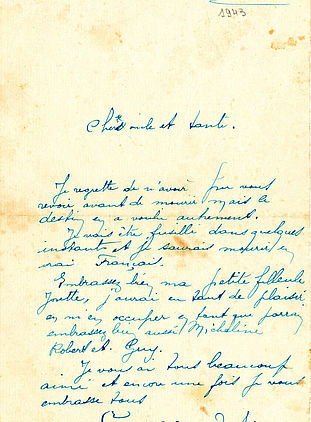 1943
Chers oncle et tante.
Je regrette de n'avoir pu vous
revoir avant de mourir mais le
destin en a voulu autrement.
Je vais être fusillé dans quelques
instants et je saurais mourir en
vrai Français.
Embrassez bien ma petite filleule
Josette, j'aurai eu tant de plaisir
en m'en occuper en tant que parrain
embrassez bien aussi Micheline
Robert et Guy.
Je vous ai tous beaucoup
aimé et encore une fois je vous
embrasse tous